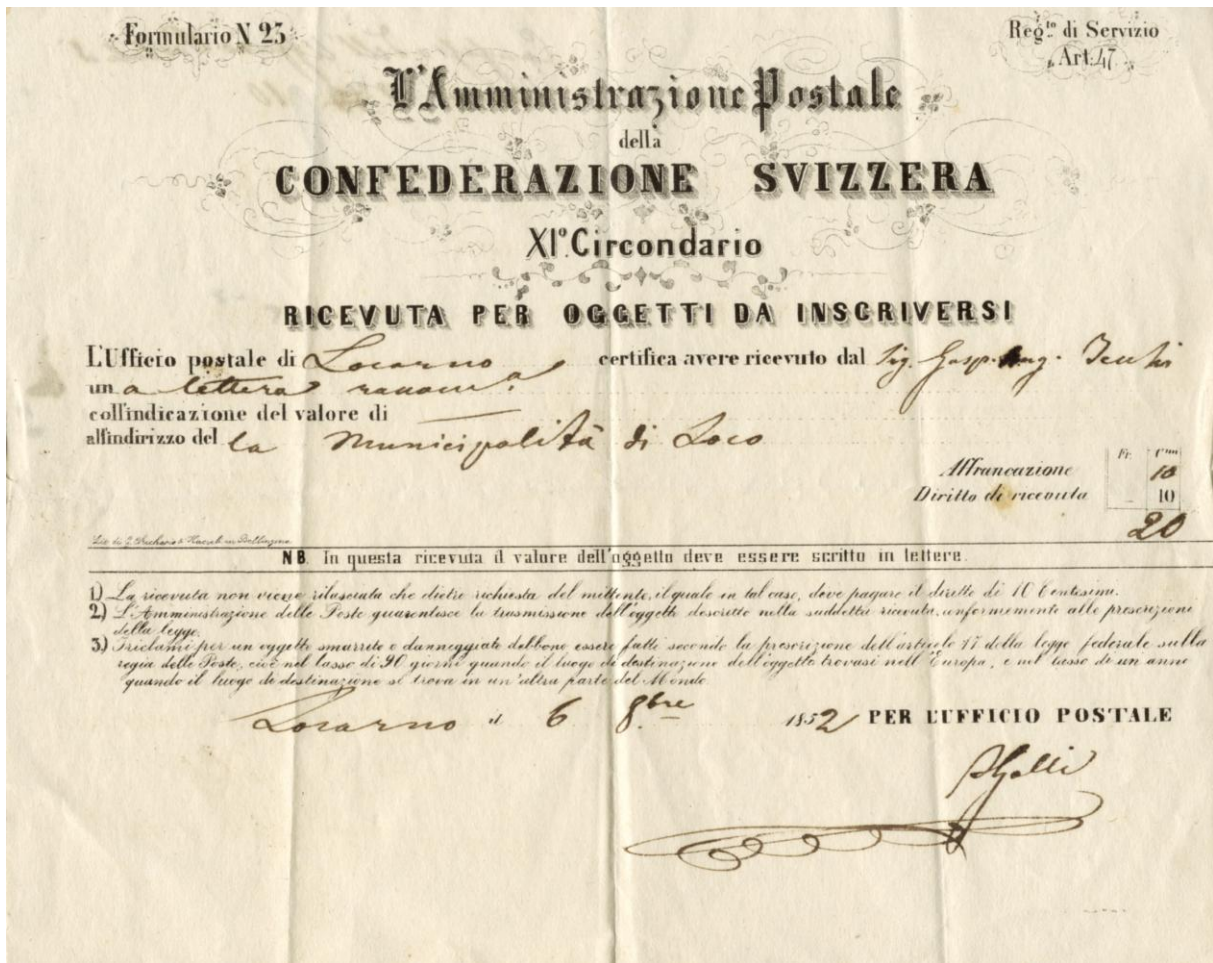 Formulario N 23
Reg.to di Servizio
Art: 47
L'Amministrazione Postale
della
CONFEDERAZIONE SVIZZERA
XIº. Circondario
RICEVUTA PER OGGETTI DA INSCRIVERSI
L'Ufficio postale di Locarno certifica avere ricevuto dal Sig. Gasp. Aug.
un a lettera
coll'indicazione del valore di —
all'indirizzo del la Municipalità di Loco
Fr. C.mi
Affrancazione 10
Diritto di ricevuta – 10
20
Lit. di in Bellinzona
NB. In questa ricevuta il valore dell'oggetto deve essere scritto in lettere.
1) La ricevuta non viene rilasciata che dietro richiesta del mittente, il quale in tal caso, deve pagare il diritto di 10 Centesimi.
2) L'Amministrazione delle Poste guarentisce la trasmissione dell'oggetto descritto nella suddetta ricevuta, conformemente alle prescrizioni
della legge.
3) I riclami per un oggetto smarrito o danneggiato debbono essere fatti secondo la prescrizione dell'articolo 17 della legge federale sulla
regia delle Poste, cioè nel lasso di 90 giorni quando il luogo di destinazione dell'oggetto trovasi nell'Europa, e nel lasso di un anno
quando il luogo di destinazione si trova in un'altra parte del Mondo.
Locarno il 6 8bre 1852 PER L'UFFICIO POSTALE
Galli